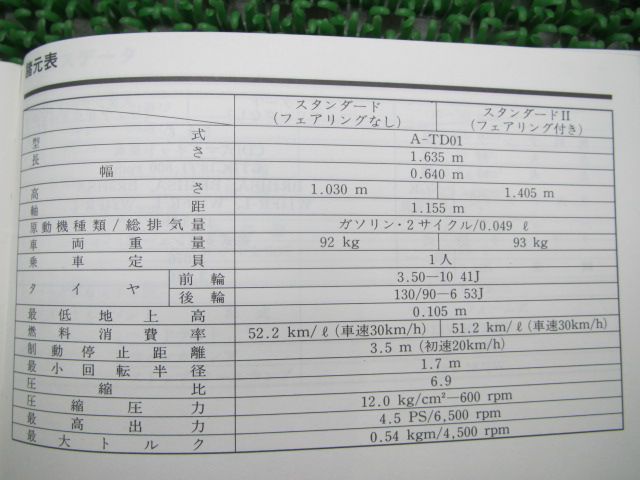 諸元表
スタンダード
(フェアリングなし)
スタンダードII
(フェアリング付き)
型式 A-TD01
長さ 1.635 m
幅 0.640 m
高さ 1.030 m 1.405 m
軸距 1.155 m
原動機種類/総排気量 ガソリン・2サイクル/0.049 ℓ
車両重量 92 kg 93 kg
乗車定員 1人
タイヤ 前輪 3.50—10 41J
後輪 130/90—6 53J
最低地上高 0.105 m
燃料消費率 52.2 km/ℓ(車速30km/h) 51.2 km/ℓ(車速30km/h)
制動停止距離 3.5 m (初速20km/h)
最小回転半径 1.7 m
圧縮比 6.9
圧縮圧力 12.0 kg/cm²—600 rpm
最高出力 4.5 PS/6,500 rpm
最大トルク 0.54 kgm/4,500 rpm